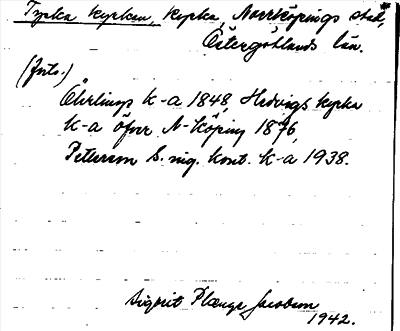 Tyska kyrkan, kyrka, Norrköpings stad,
Östergötlands län.
(forts.)
Öhrlings k-a 1848, Hedvigs kyrka
k-a öfver N-köping 1876,
Peterson S. ing. kont. k-a 1938.
Sigrit Plænge Jacobson
1942.